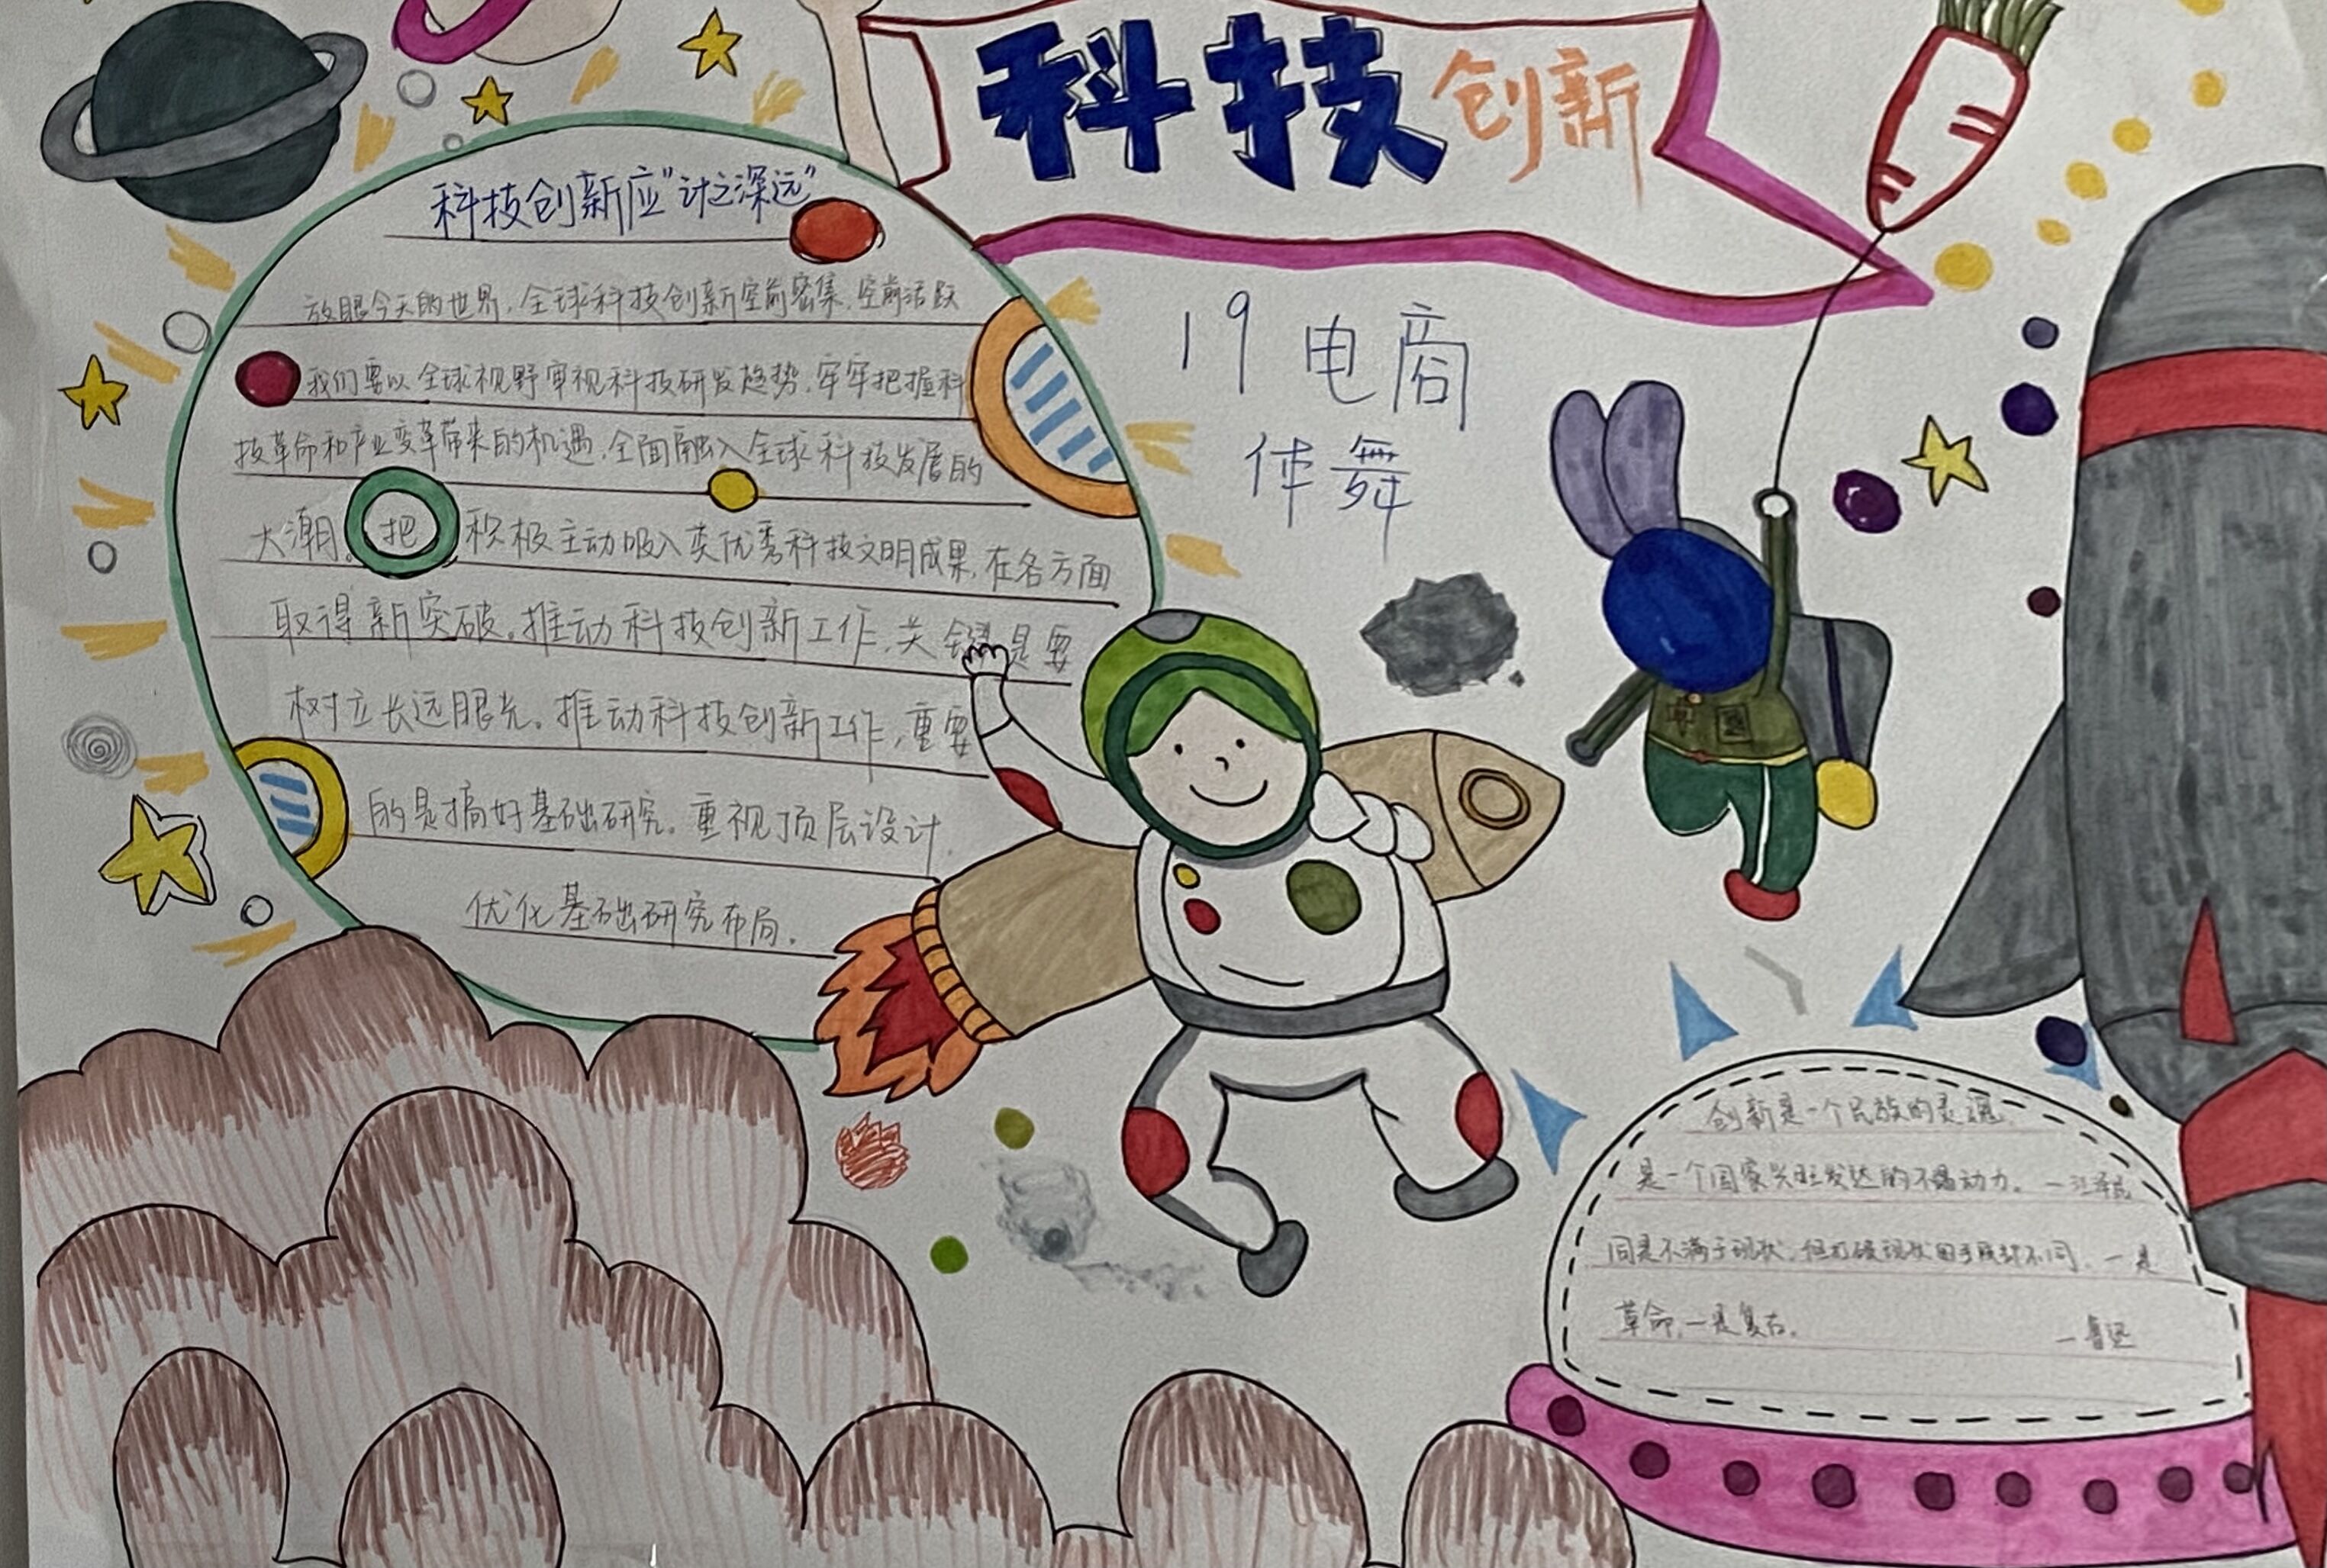 科技创新
科技创新应"计之深远"
放眼今天的世界,全球科技创新空前密集,空前活跃
我们要以全球视野审视科技研发趋势,牢牢把握科
技革命和产业变革带来的机遇,全面融入全球科技发展的
大潮。把 积极主动吸入类优秀科技文明成果,在各方面
取得新突破。推动科技创新工作,关键是要
树立长远眼光。推动科技创新工作,重要
的是搞好基础研究。重视顶层设计,
优化基础研究布局。
19 电商
体舞
创新是一个民族的灵魂
是一个国家兴旺发达的不竭动力。—江泽民
同是不满于现状,但打破现状的手段却不同,一是
革命,一是复古。 —鲁迅